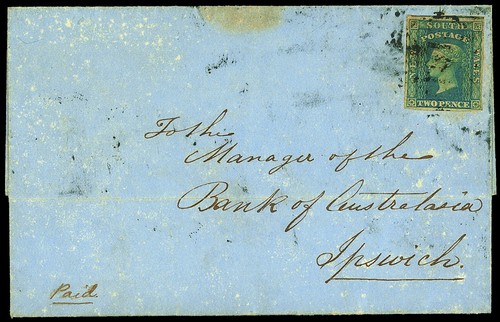 SOUTH
POSTAGE
NEW
WALES
TWO PENCE
To the
Manager of the
Bank of Australasia
Ipswich.
Paid.